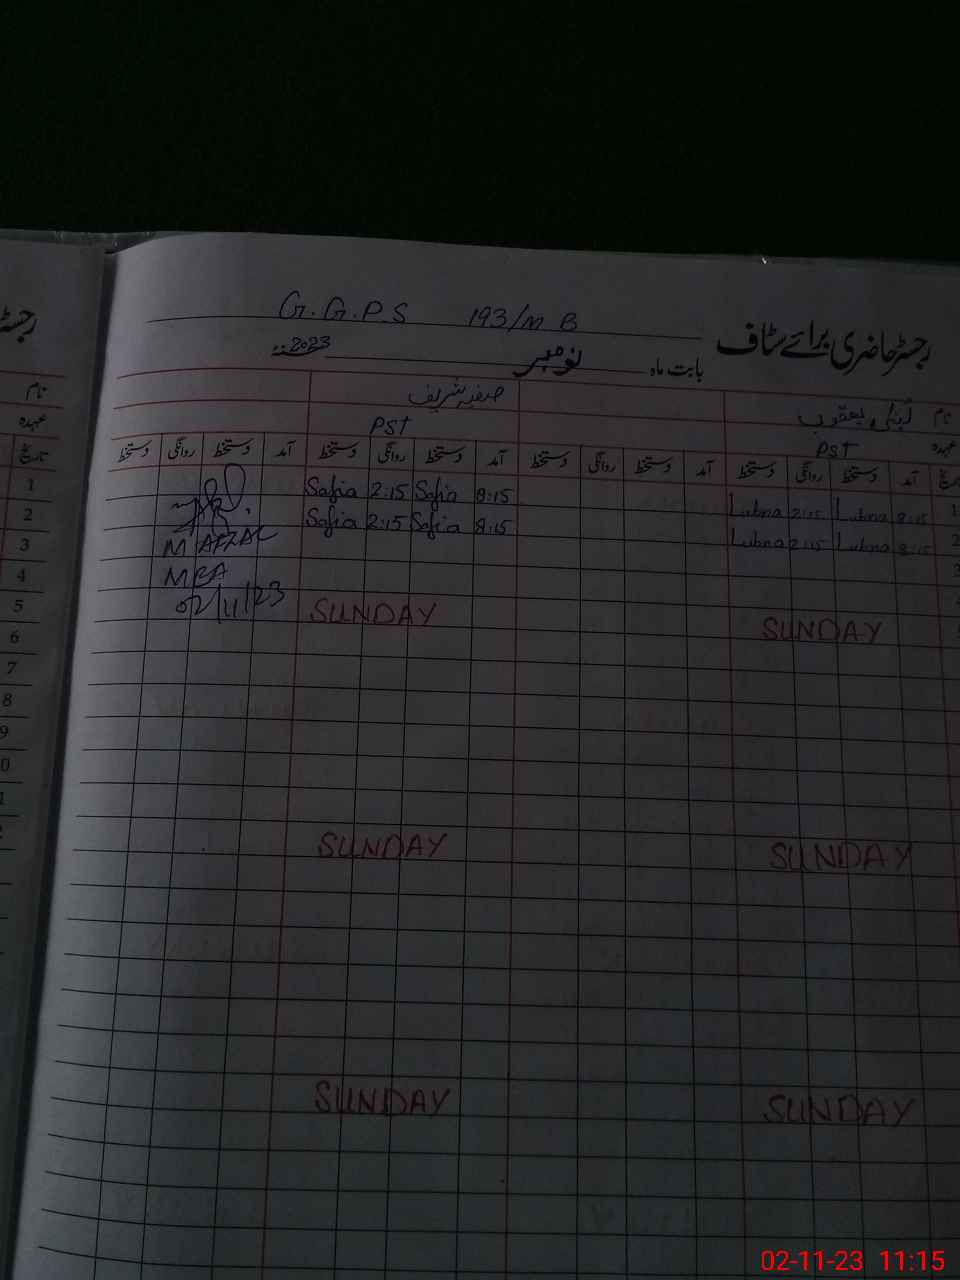 رجسٹر
G.G.P.S 193/M B
رجسٹر حاضری برائے سٹاف
بابت ماہ نومبر 2023
نام لبنیٰ یعقوب صفیہ شریف
عہدہ PST PST
آمد دستخط روانگی دستخط آمد دستخط روانگی دستخط آمد دستخط روانگی دستخط آمد دستخط روانگی دستخط
Safia 2:15 Safia 8:15 Lubna 2:15 Lubna 8:15 1
Safia 2:15 Safia 8:15 Lubna 2:15 Lubna 8:15 2
M AFZAL
MEA
02/11/23
SUNDAY SUNDAY
SUNDAY SUNDAY
SUNDAY SUNDAY
نام
عہدہ
تاریخ
1
2
3
4
5
6
7
8
9
0
1
2
02-11-23 11:15